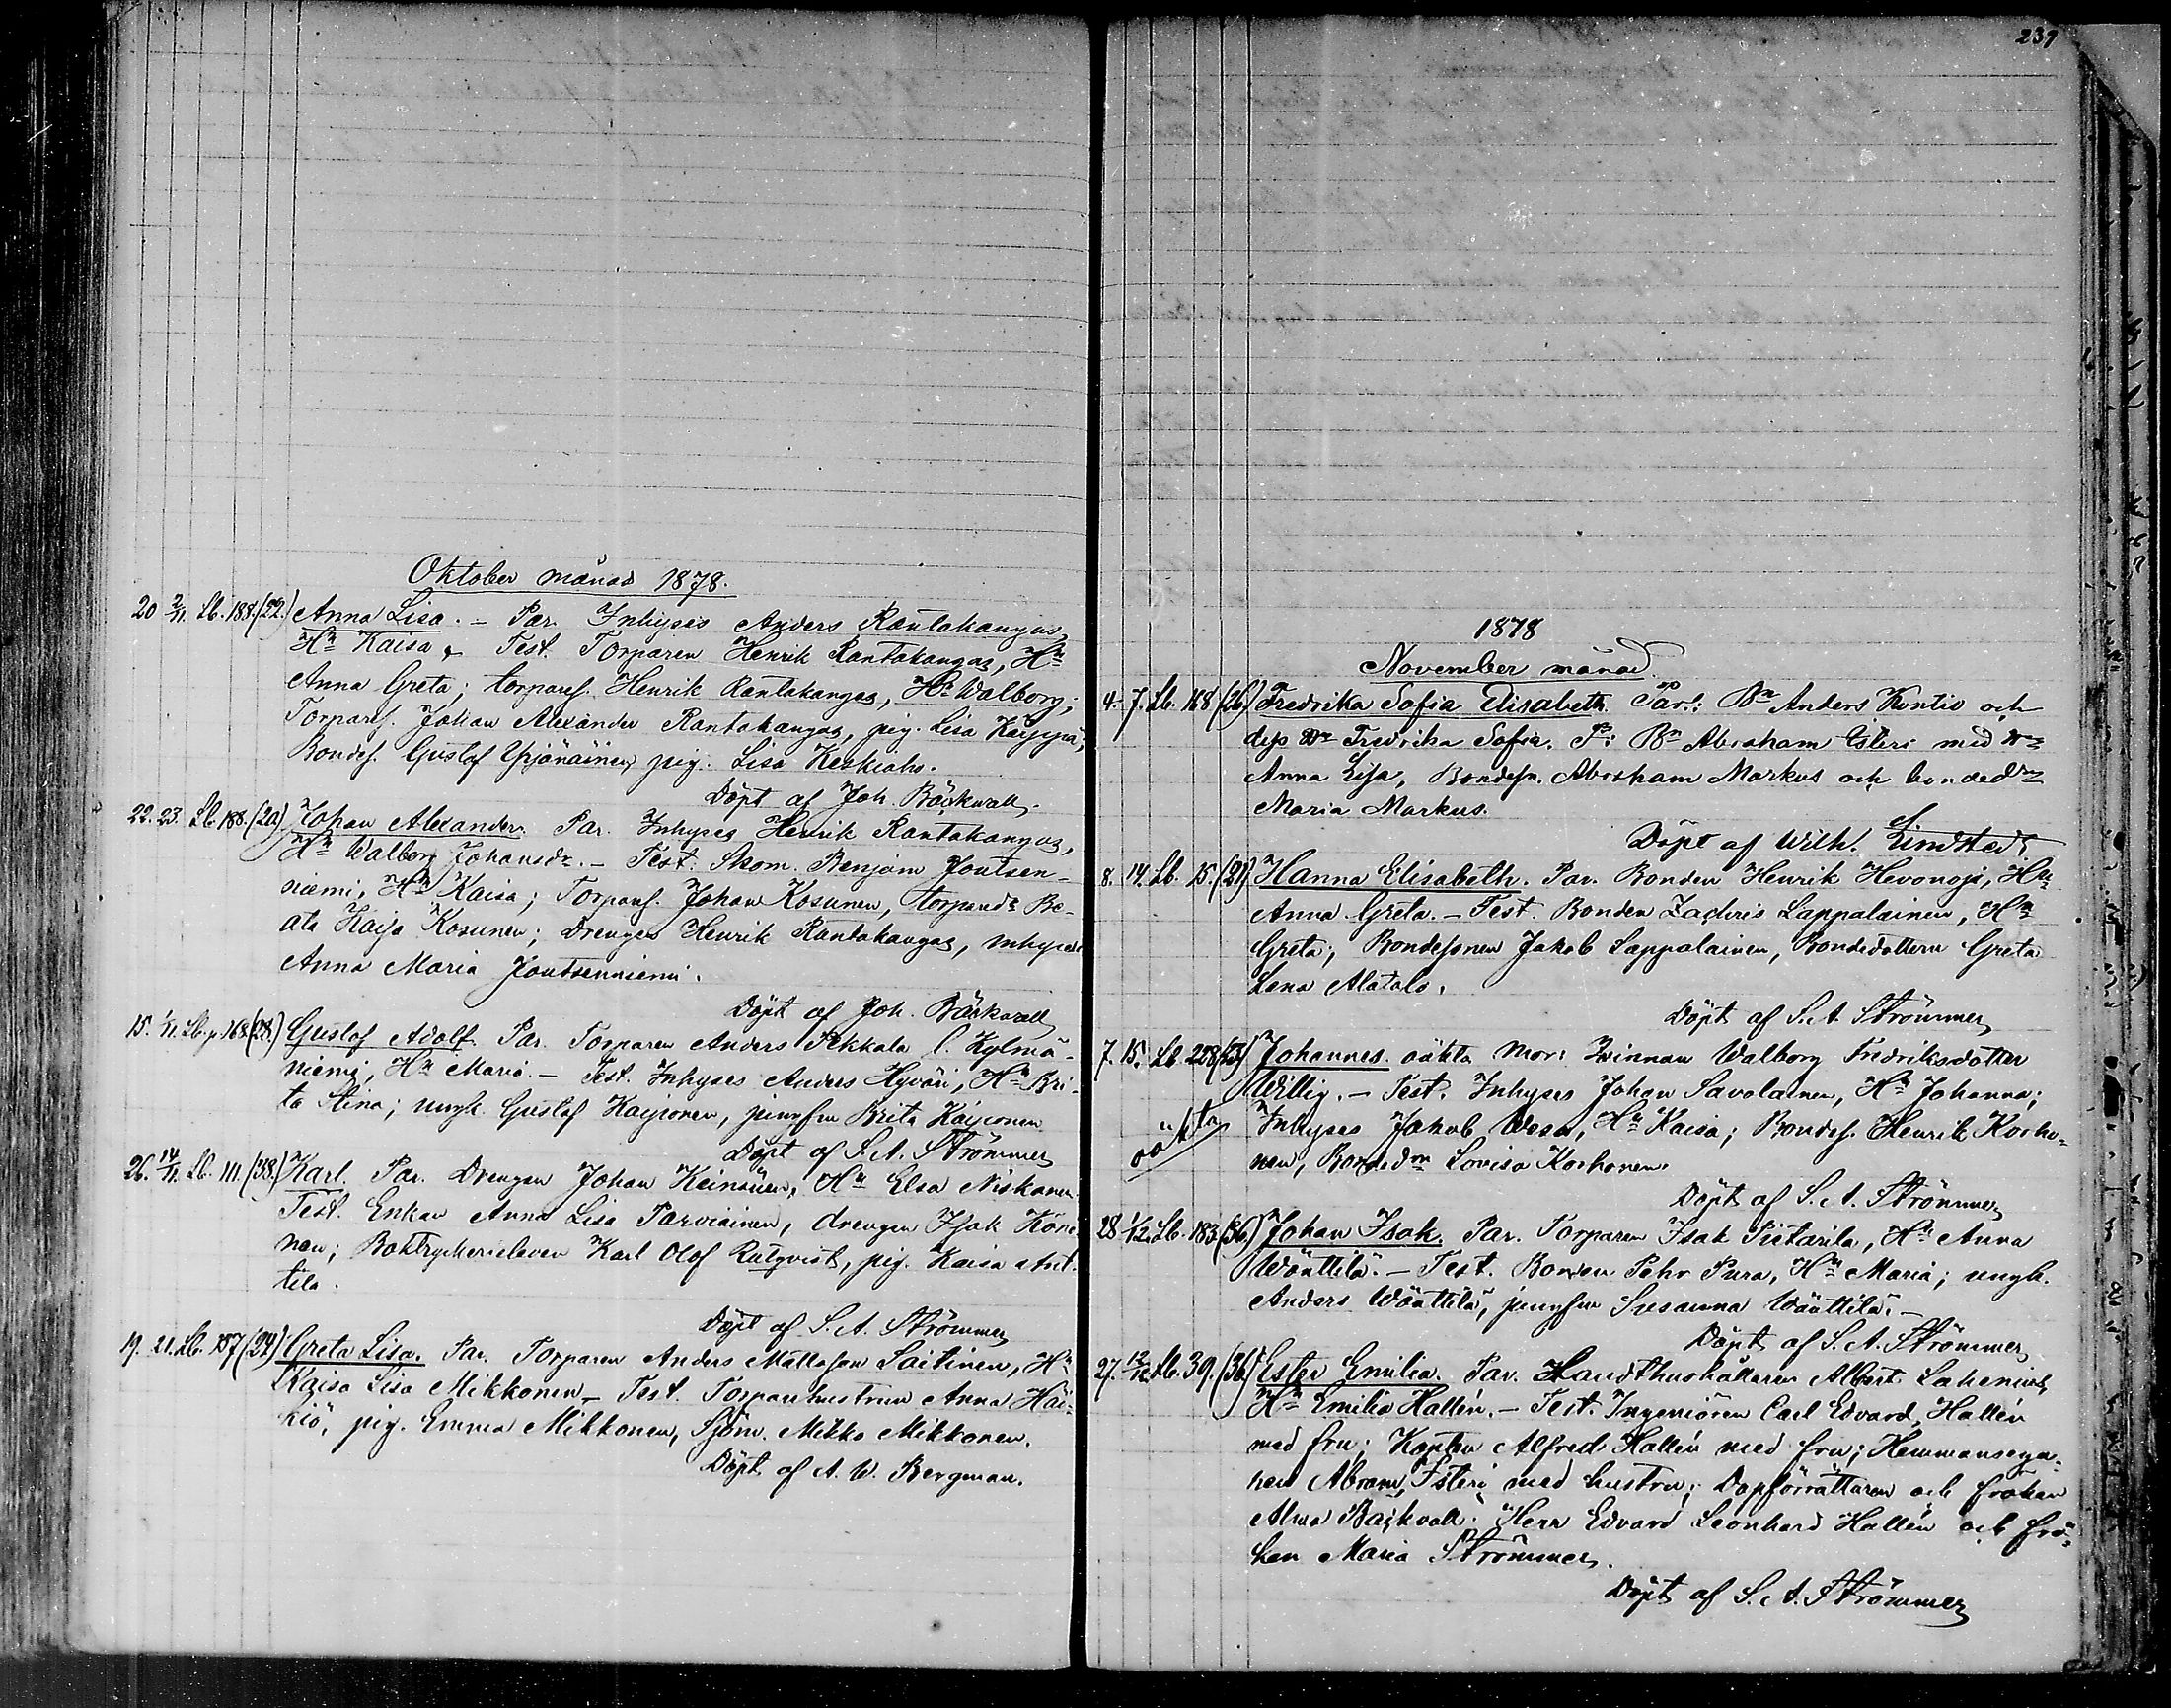 Oktober månad 1878.
20 2/11. Lb. 188. (22.) Anna Lisa. – Par. Inhyses Anders Rantakangas,
Hu Kaisa, Test. Torparen Henrik Rantakangas, Hu
Anna Greta; torpares. Henrik Rantakangas, Hu Walborg;
Torpares. Johan Alexander Rantakangas, pig. Lisa
Bondes. Gustaf pig. Lisa Keskiaho.
Döpt af Joh. Bäckvall.
22. 23. Lb. 188. (20) Johan Alexander. Par. Inhyses Henrik Rantakangas,
Hu Walborg Johansdr. – Test. Skom. Benjam Joutsen-
niemi, Hu Kaisa; Torpares. Johan Kosunen, torpareds Be-
ata Kaisa Kosunen; Drengen Henrik Rantakangas, inhyses
Anna Maria Joutsenniemi.
Döpt af Joh. Bäckvall
15. 1/11. Lb. p. 168 (28.) Gustaf Adolf. Par. Torparen Anders Pekkala l. Kylmä-
niemi, Hu Maria. – Test. Inhyses Anders Hyväri, Hu Bri-
ta Stina; ungk. Gustaf Karjonen, jungfru Brita
Döpt af S. A. Strömmer
26. 14/11. Lb. 111. (38.) Karl. Par. Drengen Johan Keinänen, Hu Elsa Niskanen.
Test. Enkan Anna Lisa Parviainen, drengen Isak
nen; Boktryckerieleven Karl Olof Rutqvist, pig. Kaisa Ant-
tila.
Döpt af S. A. Strömmer
19. 21. Lb. 187 (24) Greta Lisa. Par. Torparen Anders Mattsson Laitinen, Hu
Kaisa Lisa Mikkonen – Test. Torparhustrun Anna Häi-
kiö, pig. Emma Mikkonen, Sjöm. Mikko Mikkonen.
Döpt af A. W. Bergman.
239
1878
November månad.
4. 7. Lb. 168 (26) Fredrika Sofia Elisabeth. Par.: Bn Anders Kontio och
dess Hu Fredrika Sofia. T: Bn Abraham Isteri med Hu
Anna Lisa, Bondesn. Abraham Markus och bondedn
Maria Markus.
Döpt af Wilh. Lindstedt
8. 14. Lb. 15. (21) Hanna Elisabeth. Par. Bonden Henrik Hevonoja, Hu
Anna Greta. – Test. Bonden Zachris Lappalainen, Hu
Greta; Bondesonen Jakob Lappalainen, Bondedottern Greta
Lena Alatalo.
Döpt af S. A. Strömmer
7. 15. Lb. 228 Johannes. oäkta Mor: Qvinnan Walborg Fredriksdotter
Willig. – Test. Inhyses Johan Savolainen, Hu Johanna;
oäkta Inhyses Jakob Wesa, Hu Kaisa; Bondes. Henrik Korho-
nen, Bondedn Lovisa Korhonen.
Döpt af S. A. Strömmer
28 1/12. Lb. 183. (36) Johan Isak. Par. Torparen Isak Pietarila, Hu Anna
Wäättilä. – Test. Bonden Pehr Pura, Hu Maria; ungk.
Anders Wäättilä, jungfru Susanna Wäättilä. –
Döpt af S. A. Strömmer
27. 12/12 Lb. 39. (36) Ester Emilia. Par. Landthushållaren Albert Lahenius,
Hu Emilia Hallén. – Test. Ingeniören Carl Edvard Hallén
med fru; Kapten Alfred Hallén med fru; Hemmansega-
ren Abram Isteri med hustru; Dopförrättaren och fröken
Alma Bäckvall; Herr Edvard Leonhard Hallén och frö-
ken Maria Strömmer.
Döpt af S. A. Strömmer